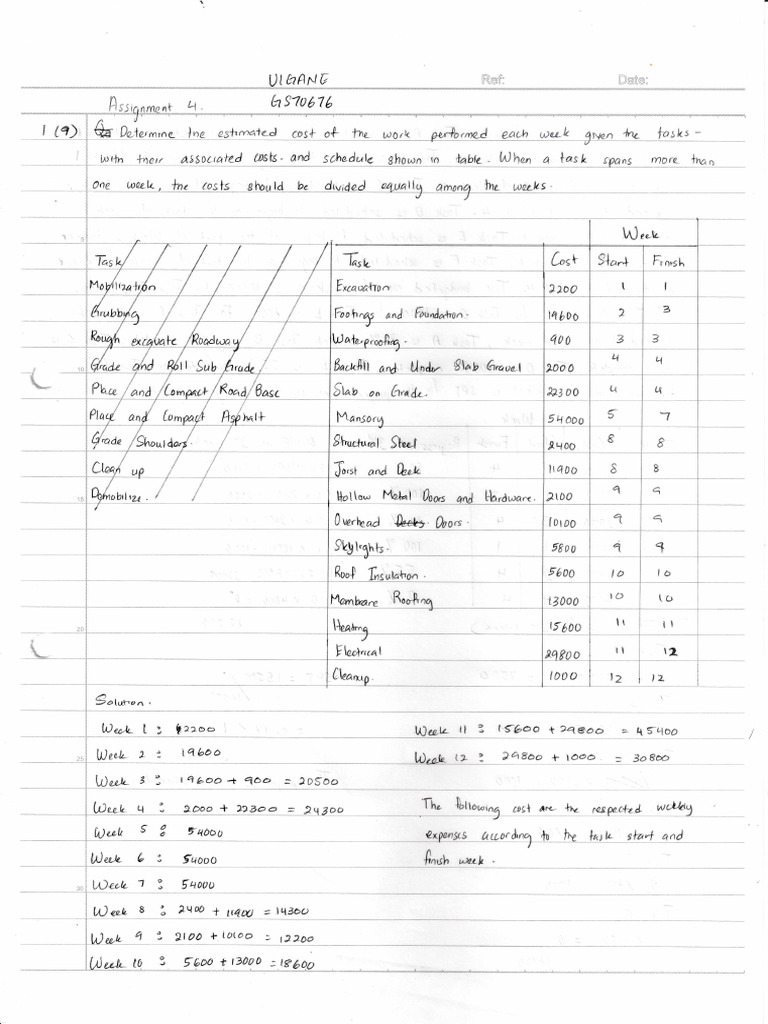 VIGANE Ref: Date:
Assignment 4. GS70676
1 (9) Determine the estimated cost of the work performed each week given the tasks -
with their associated costs. and schedule shown in table. When a task spans more than
one week, the costs should be divided equally among the weeks.
Week
Task Task Cost Start Finish
Mobilization Excavation 2200 1 1
Grubbing Footings and Foundation. 19600 2 3
Rough excavate Roadway Waterproofing. 900 3 3
10 Grade and Roll Sub Grade Backfill and Under Slab Gravel 2000 4 4
Place and Compact Road Base Slab on Grade. 22300 4 4
Place and Compact Asphalt Mansory 54000 5 7
Grade Shoulders. Structural Steel 2400 8 8
Clean up Joist and Deck 11900 8 8
15 Demobilize. Hollow Metal Doors and Hardware. 2100 9 9
Overhead Decks Doors. 10100 9 9
Skylights. 5800 9 9
Roof Insulation. 5600 10 10
Membrane Roofing 13000 10 10
20 Heating 15600 11 11
Electrical 29800 11 12
Cleanup. 1000 12 12
Solution.
Week 1 : $2200 Week 11 : 15600 + 29800 = 45400
25 Week 2 : 19600 Week 12 : 29800 + 1000 = 30800
Week 3 : 19600 + 900 = 20500
Week 4 : 2000 + 22300 = 24300 The following cost are the respected weekly
Week 5 : 54000 expenses according to the task start and
Week 6 : 54000 finish week.
30 Week 7 : 54000
Week 8 : 2400 + 11900 = 14300
Week 9 : 2100 + 10100 = 12200
Week 10 : 5600 + 13000 = 18600